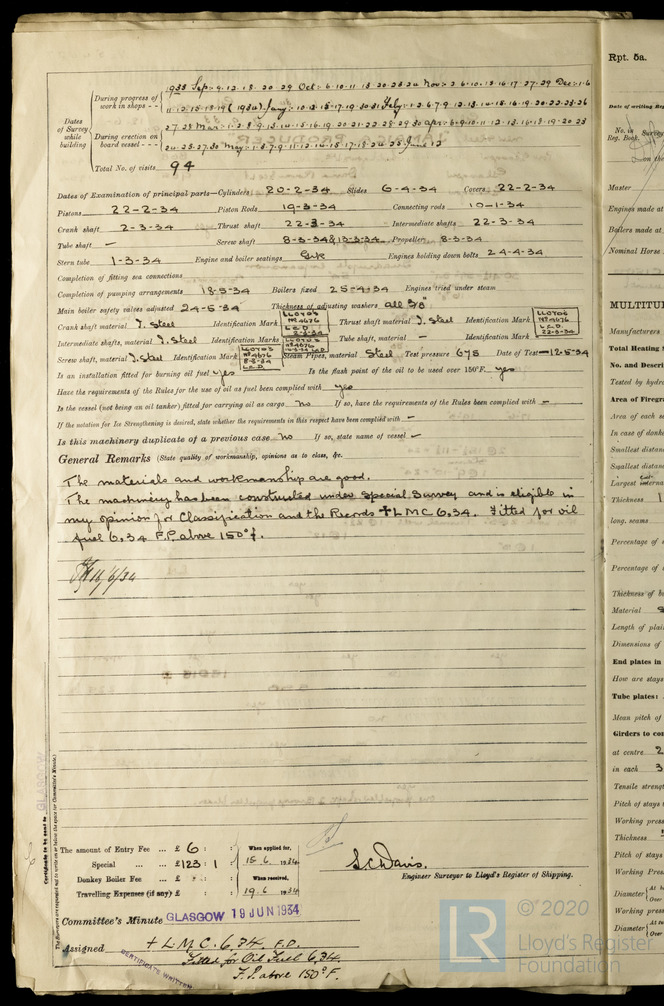 During progress of work in shops - -
1933 Sep: 9.12.18.20 29 Oct: 6.10.11 13 20.23.24 Nov: 2 6.10.13.16.17.27.29 Dec: 1.6
11.12.15.18.19 (1934) Jany: 10.12.15.17.19.30.31 Feby: 1.2.6.7.9 12.13.14.15.16.19.20.22.23.26
Dates of Survey while building
During erection on board vessel - - -
27.28 Mar: 1.2.8.9.13.14.15.16.19.20.21.22.28.29.30 Apr: 6.9.10.11.12.13.16.18.19.20 23
24.25.27.30 May: 1.3.7.9.11.12.14.15.17.18.24 25 June 12
Total No. of visits 94
Dates of Examination of principal parts—Cylinders 20-2-34 Slides 6-4-34 Covers 22-2-34
Pistons 22-2-34 Piston Rods 19-3-34 Connecting rods 10-1-34
Crank shaft 2-3-34 Thrust shaft 22-3-34 Intermediate shafts 22-3-34
Tube shaft — Screw shaft 8-3-34 & 13-3-34 Propeller 8-3-34
Stern tube 1-3-34 Engine and boiler seatings Engines holding down bolts 24-4-34
Completion of fitting sea connections
Completion of pumping arrangements 18-5-34 Boilers fixed 25-4-34 Engines tried under steam
Main boiler safety valves adjusted 24-5-34 Thickness of adjusting washers all 3/8"
Crank shaft material I. Steel Identification Mark LLOYD'S No 4676 L.C.D. 2-3-34 Thrust shaft material I. Steel Identification Mark LLOYD'S No 4676 L.C.D. 22-3-34
Intermediate shafts, material I. Steel Identification Marks LLOYD'S No 4676 Tube shaft, material — Identification Mark —
Screw shaft, material I. Steel Identification Mark LLOYD'S No 4676 8-3-34 L.C.D. Steam Pipes, material Steel Test pressure 675 Date of Test 12-5-34
Is an installation fitted for burning oil fuel yes Is the flash point of the oil to be used over 150°F. yes
Have the requirements of the Rules for the use of oil as fuel been complied with yes
Is the vessel (not being an oil tanker) fitted for carrying oil as cargo no If so, have the requirements of the Rules been complied with —
If the notation for Ice Strengthening is desired, state whether the requirements in this respect have been complied with —
Is this machinery duplicate of a previous case no If so, state name of vessel —
General Remarks (State quality of workmanship, opinions as to class, &c.
The materials and workmanship are good.
The machinery has been constructed under special survey and is eligible in
my opinion for Classification and the Records ✠ L M C 6,34. Fitted for oil
fuel 6,34 F.P. above 150°f.
16/6/34
Certificate to be sent to GLASGOW
The amount of Entry Fee ... £ 6 : : When applied for,
Special ... ... £ 123 : 1 : 15.6.1934
Donkey Boiler Fee ... £ : : When received,
Travelling Expenses (if any) £ : : 19.6.1934
S.C. Davis.
Engineer Surveyor to Lloyd's Register of Shipping.
Committee's Minute GLASGOW 19 JUN 1934
Assigned + L.M.C. 6,34. F.D.
Fitted for Oil Fuel 6,34.
F.P. above 150°F.
CERTIFICATE WRITTEN
Rpt. 5a.
Date of writing Re
No. in Reg. Book. Survey
on the
Master
Engines made at
Boilers made at
Nominal Horse
MULTITU
Manufacturers
Total Heating S
No. and Descri
Tested by hydr
Area of Firegr
Area of each s
In case of donk
Smallest distan
Smallest distan
Largest internal
Thickness 1
long. seams
Percentage of s
Percentage of s
Thickness of b
Material S
Length of plai
Dimensions of
End plates in
How are stays
Tube plates:
Mean pitch of
Girders to co
at centre 2
in each 3
Tensile streng
Pitch of stays
Working press
Thickness
Pitch of stays
Working Pres
Diameter At b Over
Working press
Diameter At b Over
LR © 2020
Lloyd's Register
Foundation